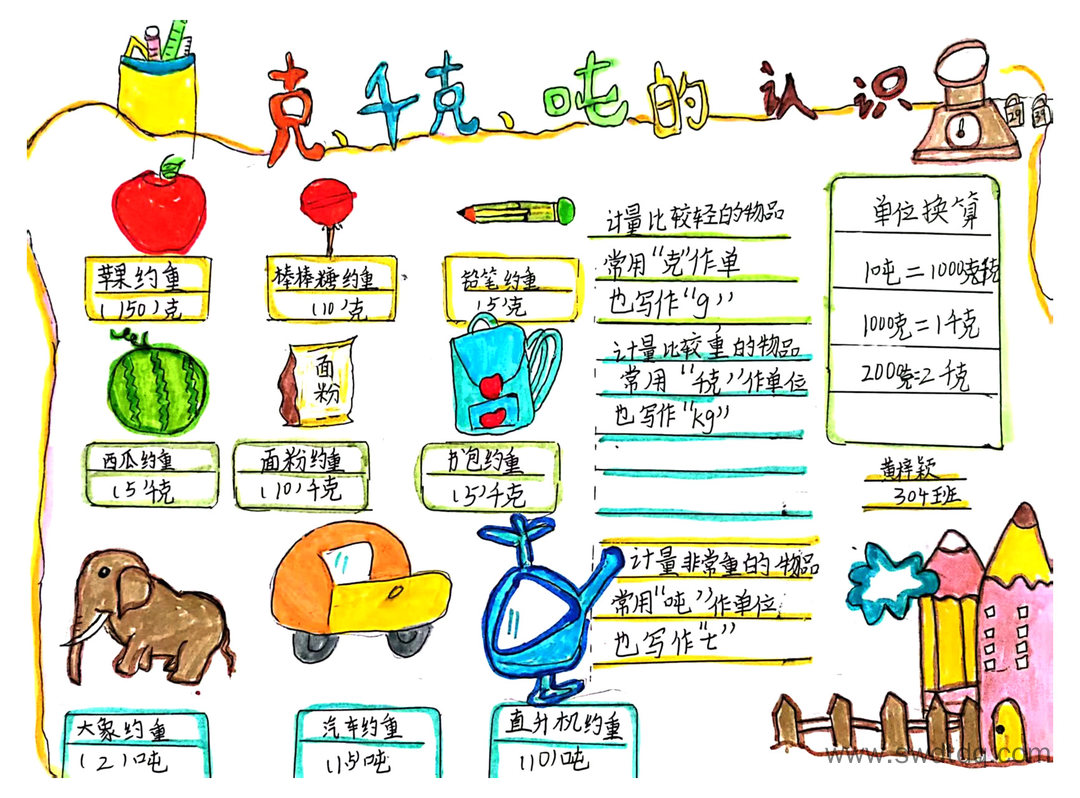 克、千克、吨的认识
苹果约重
(150)克
棒棒糖约重
(10)克
铅笔约重
(5)克
西瓜约重
(5)千克
面
粉
面粉约重
(10)千克
书包约重
(5)千克
大象约重
(2)吨
汽车约重
(15)吨
直升机约重
(10)吨
计量比较轻的物品
常用“克”作单
也写作“g”
计量比较重的物品
常用“千克”作单位
也写作“kg”
计量非常重的物品
常用“吨”作单位
也写作“t”
单位换算
1000克=1千克
2000克=2千克
黄梓颖
304班
www.swdtdq.com